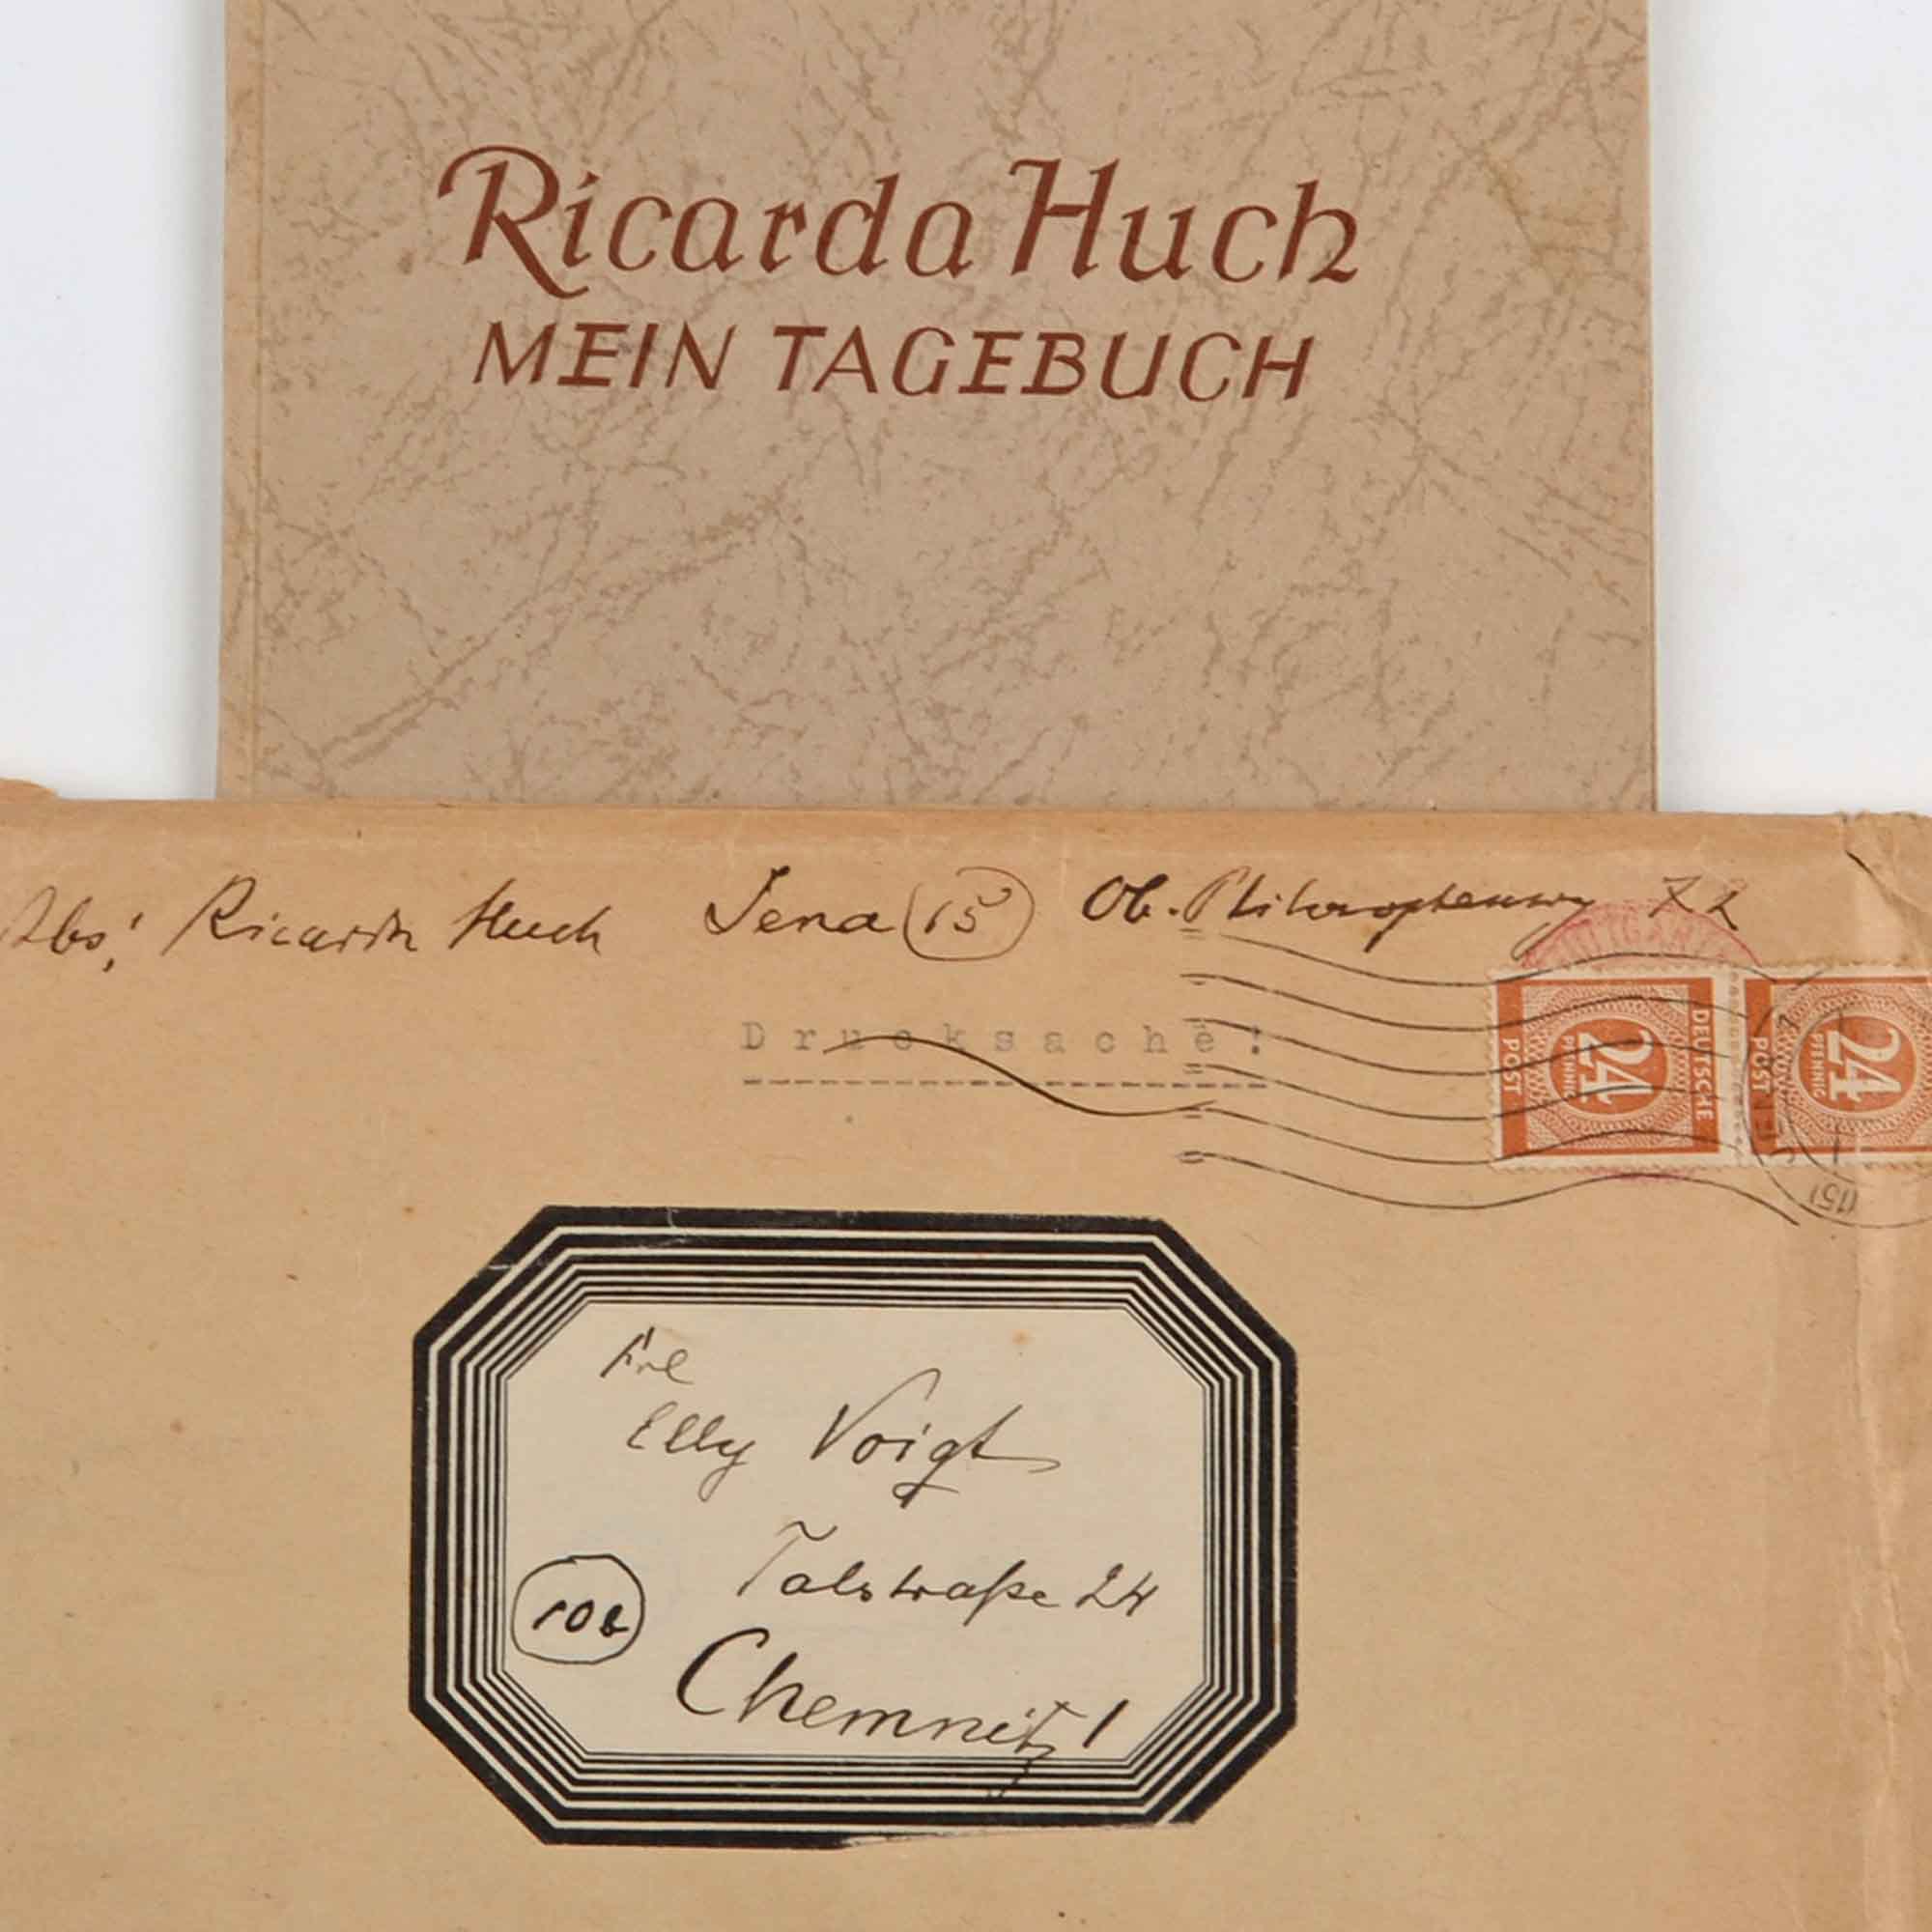 Ricarda Huch
MEIN TAGEBUCH
Abs: Ricarda Huch Jena (15) Ob. Philosophenweg 72
Drucksache!
24 PFENNIG DEUTSCHE POST
24 PFENNIG POST
Frl
Elly Voigt
Talstraße 24
10b
Chemnitz 1